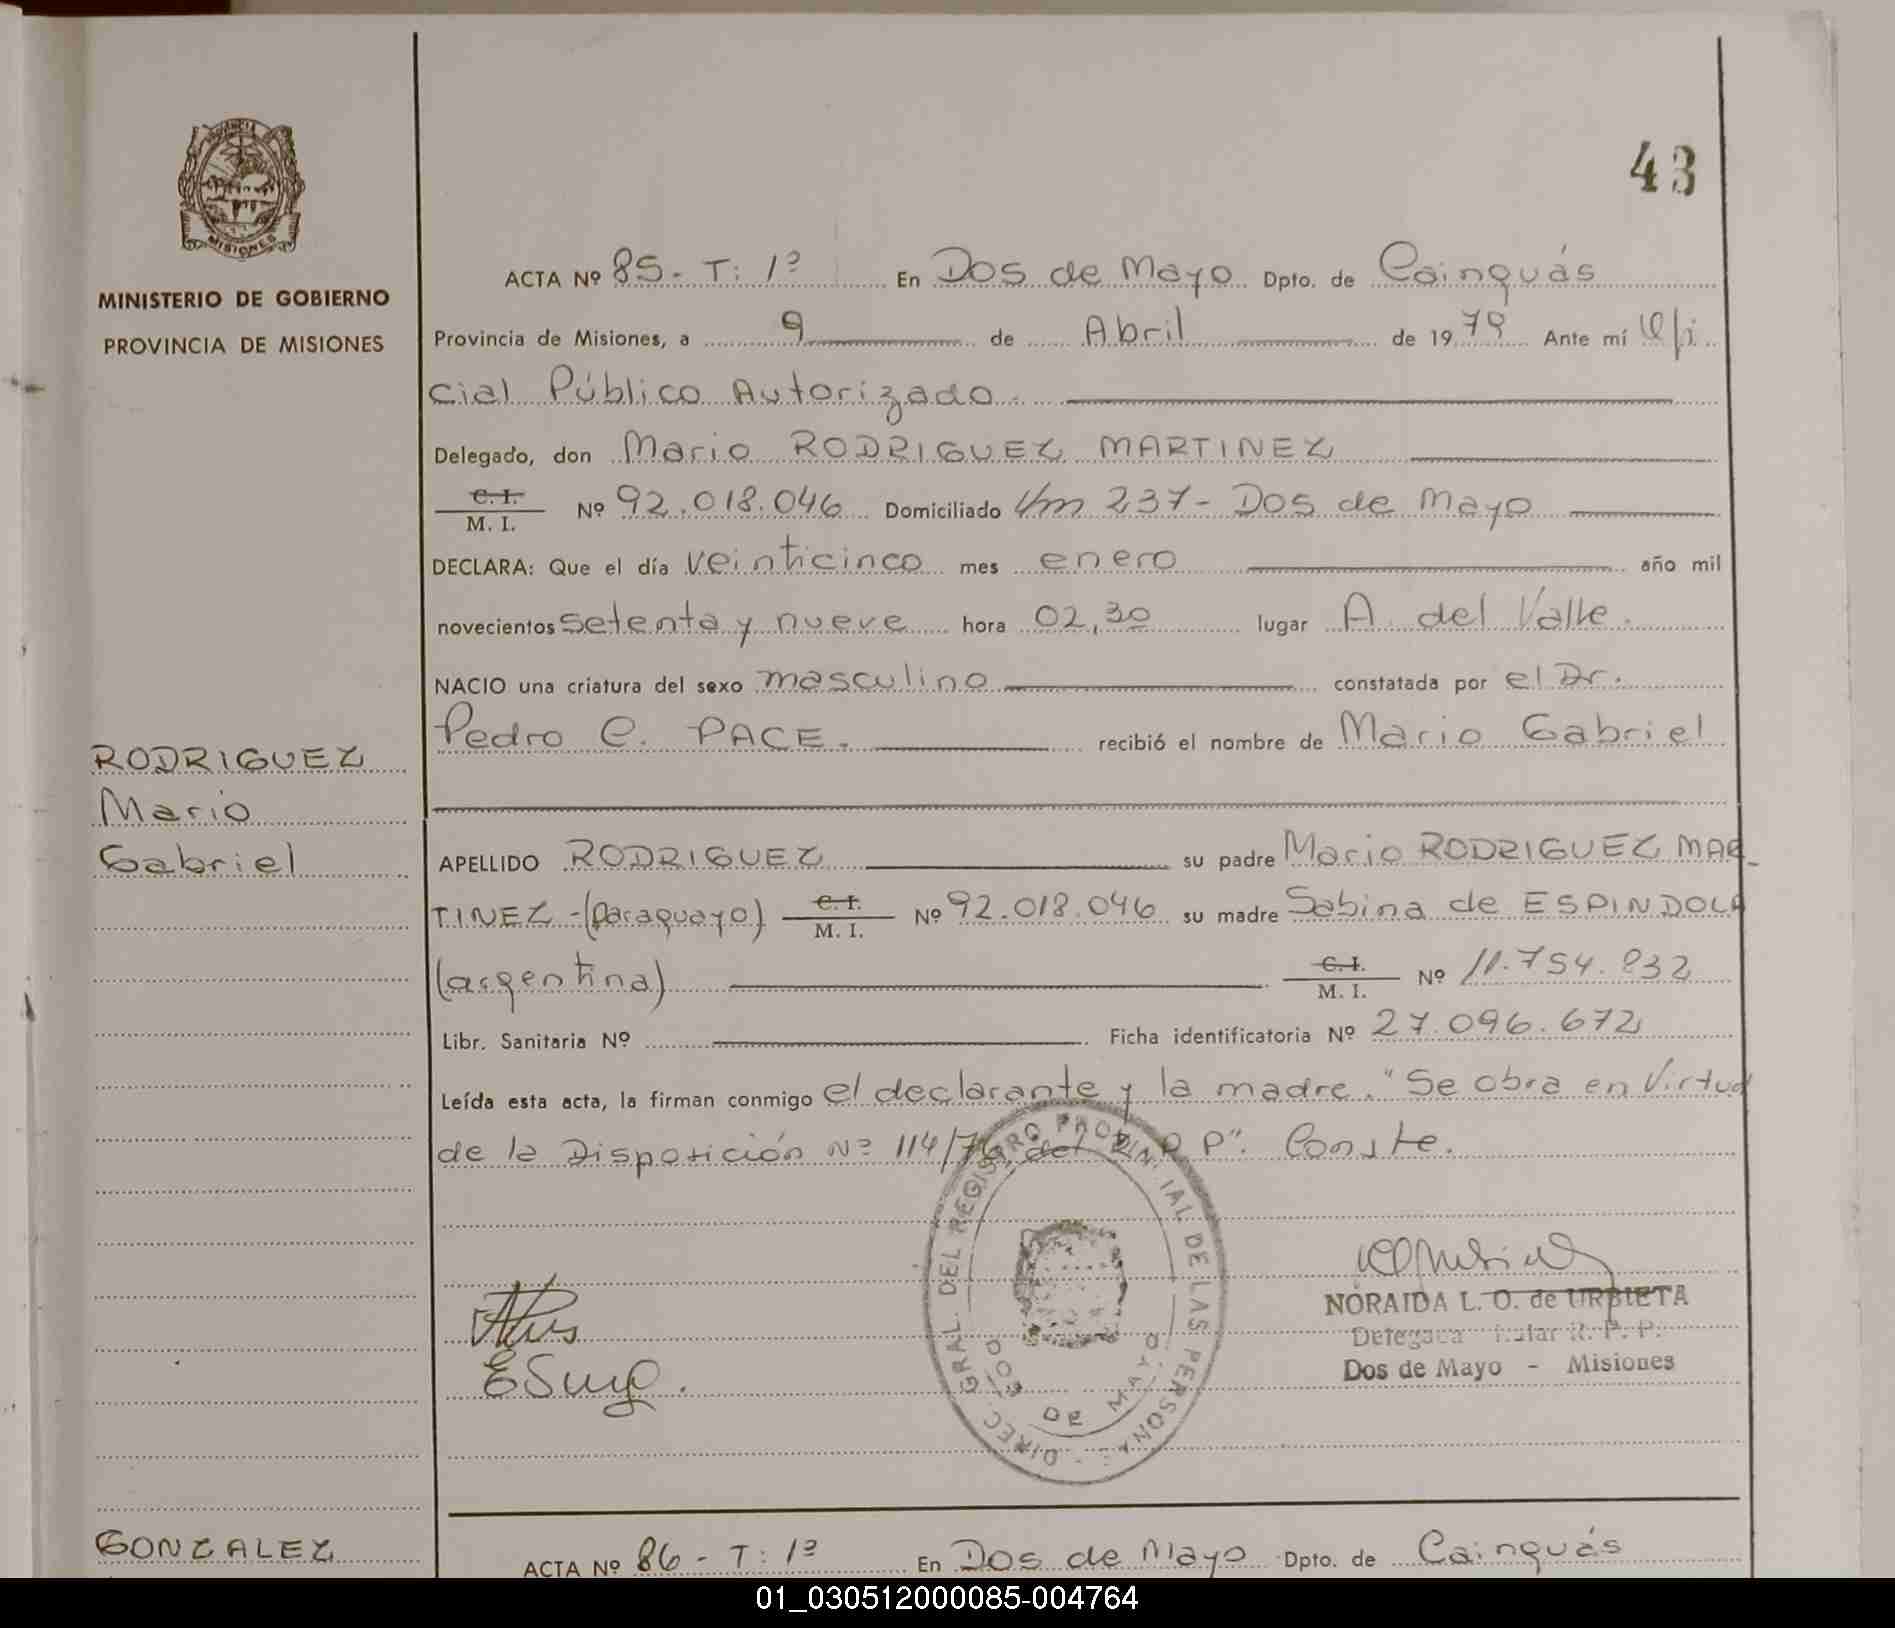 43
PROVINCIA
MISIONES
MINISTERIO DE GOBIERNO
PROVINCIA DE MISIONES
ACTA Nº 85.- T: 1º En Dos de Mayo Dpto. de Cainguás
Provincia de Misiones, a 9 de Abril de 1979 Ante mí Ofi
cial Público Autorizado.
Delegado, don Mario RODRIGUEZ MARTINEZ
C. I.
M. I. Nº 92.018.046 Domiciliado Km 237- Dos de Mayo
DECLARA: Que el día veinticinco mes enero año mil
novecientos setenta y nueve hora 02,30 lugar A. del Valle.
NACIO una criatura del sexo masculino constatada por el Dr.
Pedro C. PACE. recibió el nombre de Mario Gabriel
RODRIGUEZ
Mario
Gabriel
APELLIDO RODRIGUEZ su padre Mario RODRIGUEZ MAR_
TINEZ -(paraguayo) C. I.
M. I. Nº 92.018.046 su madre Sabina de ESPINDOLA
(argentina) C. I.
M. I. Nº 11.754.832
Libr. Sanitaria Nº Ficha identificatoria Nº 27.096.672
Leída esta acta, la firman conmigo el declarante y la madre. "Se obra en virtud
de la Disposición Nº 114/76, del R.P.P". Conste.
DIREC. GRAL. DEL REGISTRO PROVINCIAL DE LAS PERSONAS
DOS DE MAYO
NORAIDA L. O. de URBIETA
Delegada Titular R. P. P.
Dos de Mayo - Misiones
GONZALEZ
ACTA Nº 86 - T: 1º En Dos de Mayo Dpto. de Cainguás
01_030512000085-004764